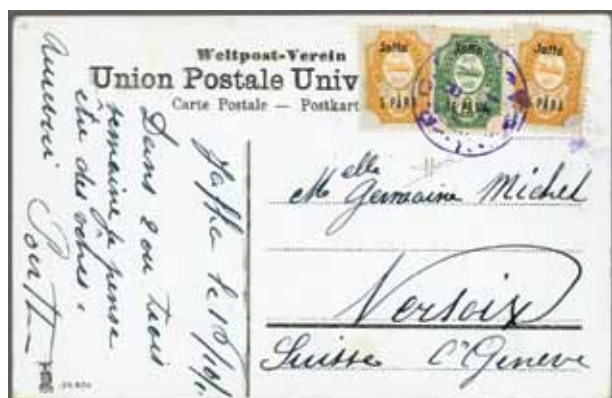 Weltpost-Verein
Union Postale Univ
Carte Postale — Postkart
Jaffa
5 PARA
Jaffa
10 PARA
Jaffa
5 PARA
Jaffa le 10/10/
Dans 2 ou trois
semaine je pense
être des vôtres.
Melle Germaine Michel
Versoix
Suisse Ct Geneve